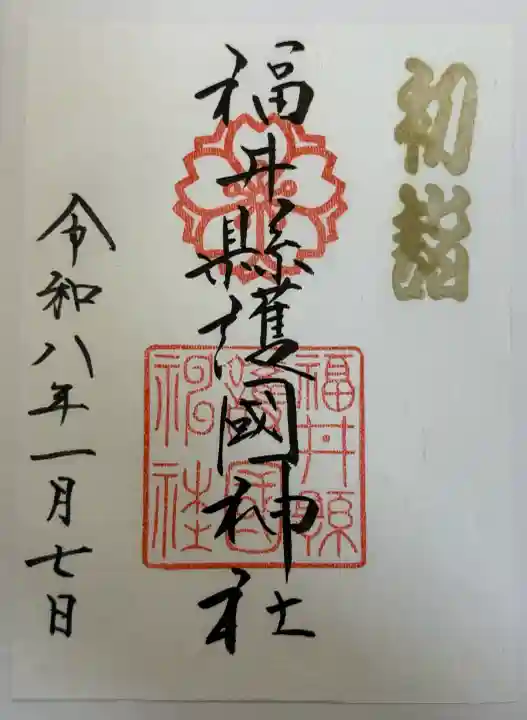 初詣
福井縣護國神社
福井縣
護國
神社
令和八年一月七日